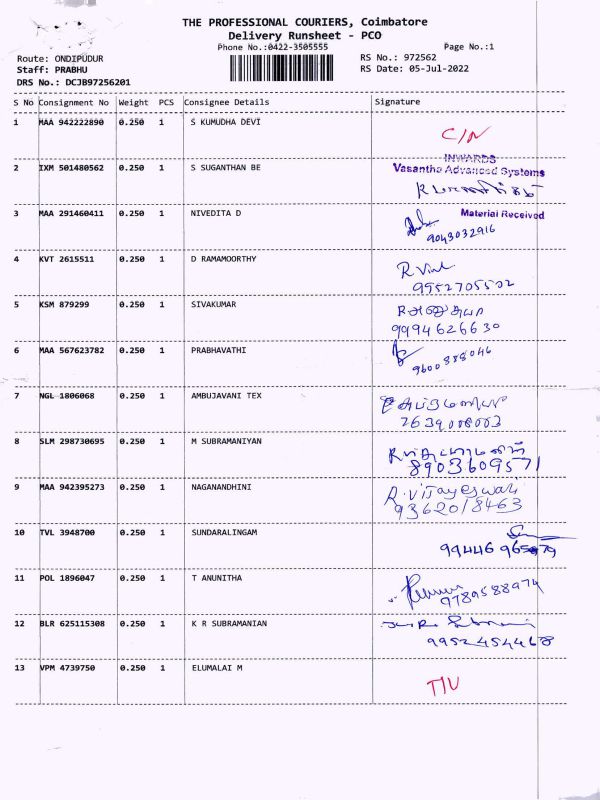 THE PROFESSIONAL COURIERS, Coimbatore
Delivery Runsheet - PCO
Phone No.:0422-3505555
Page No.:1
Route: ONDIPUDUR
Staff: PRABHU
DRS No.: DCJB97256201
RS No.: 972562
RS Date: 05-Jul-2022
S No Consignment No Weight PCS Consignee Details Signature
1 MAA 942222890 0.250 1 S KUMUDHA DEVI
C/N
INWARDS
2 IXM 501480562 0.250 1 S SUGANTHAN BE Vasantha Advanced Systems
3 MAA 291460411 0.250 1 NIVEDITA D Material Received
9043032916
4 KVT 2615511 0.250 1 D RAMAMOORTHY
9952705502
5 KSM 879299 0.250 1 SIVAKUMAR
9994626630
6 MAA 567623782 0.250 1 PRABHAVATHI
9600888046
7 NGL 1806068 0.250 1 AMBUJAVANI TEX
8 SLM 298730695 0.250 1 M SUBRAMANIYAN
8903609571
9 MAA 942395273 0.250 1 NAGANANDHINI R. Vijayeswari
9362018463
10 TVL 3948700 0.250 1 SUNDARALINGAM
11 POL 1896047 0.250 1 T ANUNITHA
9789588974
12 BLR 625115308 0.250 1 K R SUBRAMANIAN
9952454468
13 VPM 4739750 0.250 1 ELUMALAI M